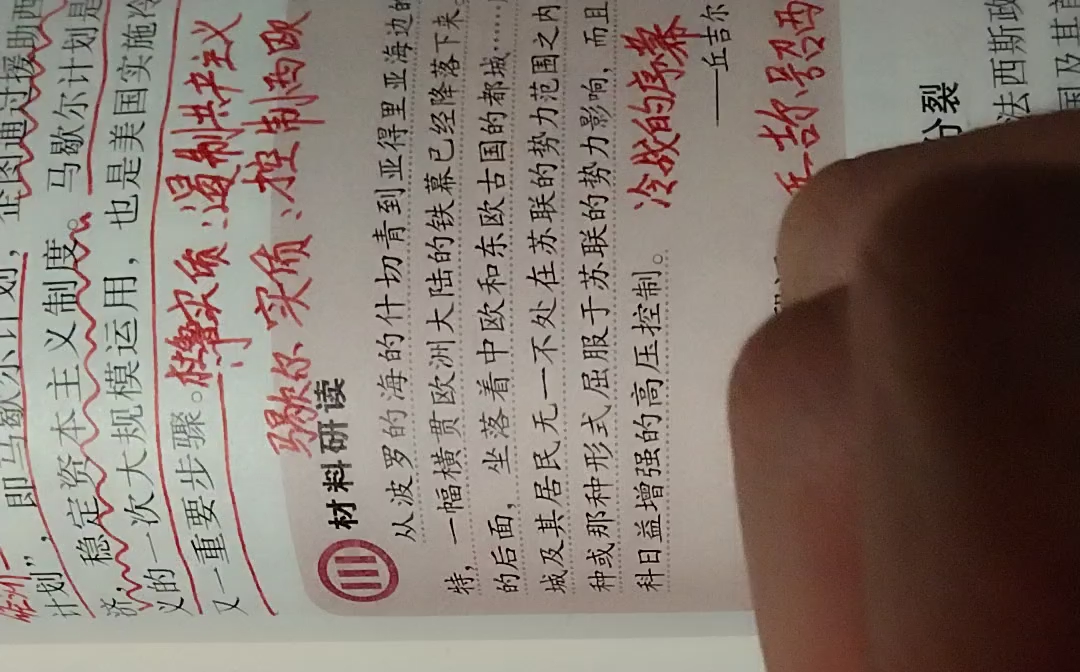 企图通过援助西
即马歇尔计划,
计划”,稳定资本主义制度。马歇尔计划是
济,
义的一次大规模运用,也是美国实施冷
又一重要步骤。杜鲁门实质:遏制共产主义
马歇尔实质:控制西欧
材料研读
从波罗的海的什切青到亚得里亚海边的
特,一幅横贯欧洲大陆的铁幕已经降落下来。
的后面,坐落着中欧和东欧古国的都城……
城及其居民无一不处在苏联的势力范围之内
种或那种形式屈服于苏联的势力影响,而且
科日益增强的高压控制。
冷战的序幕
——丘吉尔
丘吉尔
西
分裂
法西斯政
国及其